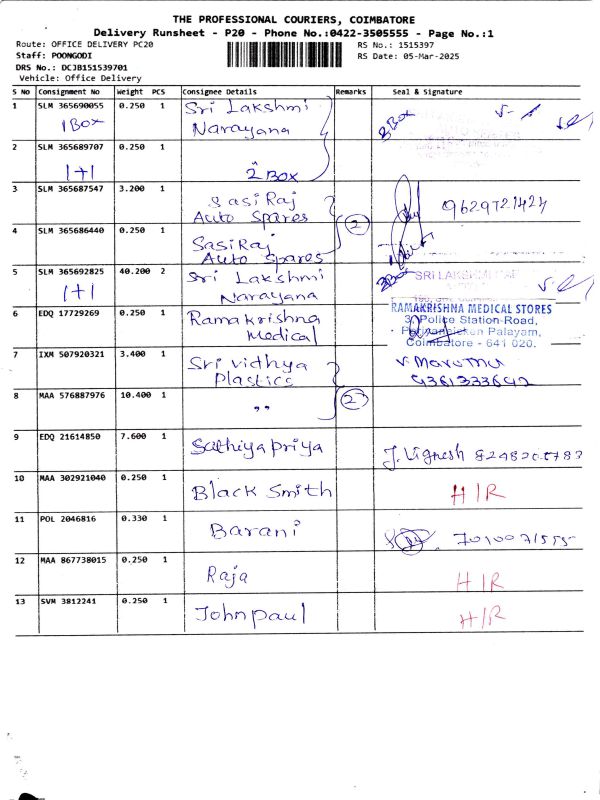 THE PROFESSIONAL COURIERS, COIMBATORE
Delivery Runsheet - P20 - Phone No.:0422-3505555 - Page No.:1
Route: OFFICE DELIVERY PC20
RS No.: 1515397
Staff: POONGODI
RS Date: 05-Mar-2025
DRS No.: DCJB151539701
Vehicle: Office Delivery
S No Consignment No Weight PCS Consignee Details Remarks Seal & Signature
1 SLM 365690055 0.250 1 Sri Lakshmi
1 Box Narayana 2 Box
2 SLM 365689707 0.250 1
1+1 2 Box
3 SLM 365687547 3.200 1 Sasi Raj
Auto Spares 2 9629721424
4 SLM 365686440 0.250 1 Sasi Raj
Auto Spares
5 SLM 365692825 40.200 2 Sri Lakshmi 2 Box SRI LAKSHMI
1+1 Narayana
6 EDQ 17729269 0.250 1 Ramakrishna RAMAKRISHNA MEDICAL STORES
Medical 3, Police Station-Road,
Palayam,
Coimbatore - 641 020.
7 IXM 507920321 3.400 1 Sri vidhya
Plastics 9361333642
8 MAA 576887976 10.400 1 ,, 2
9 EDQ 21614850 7.600 1 Sathiyapriya J. Vignesh
10 MAA 302921040 0.250 1 Black Smith H/R
11 POL 2046816 0.330 1 Barani
12 MAA 867738015 0.250 1 Raja H/R
13 SVM 3812241 0.250 1 John paul H/R